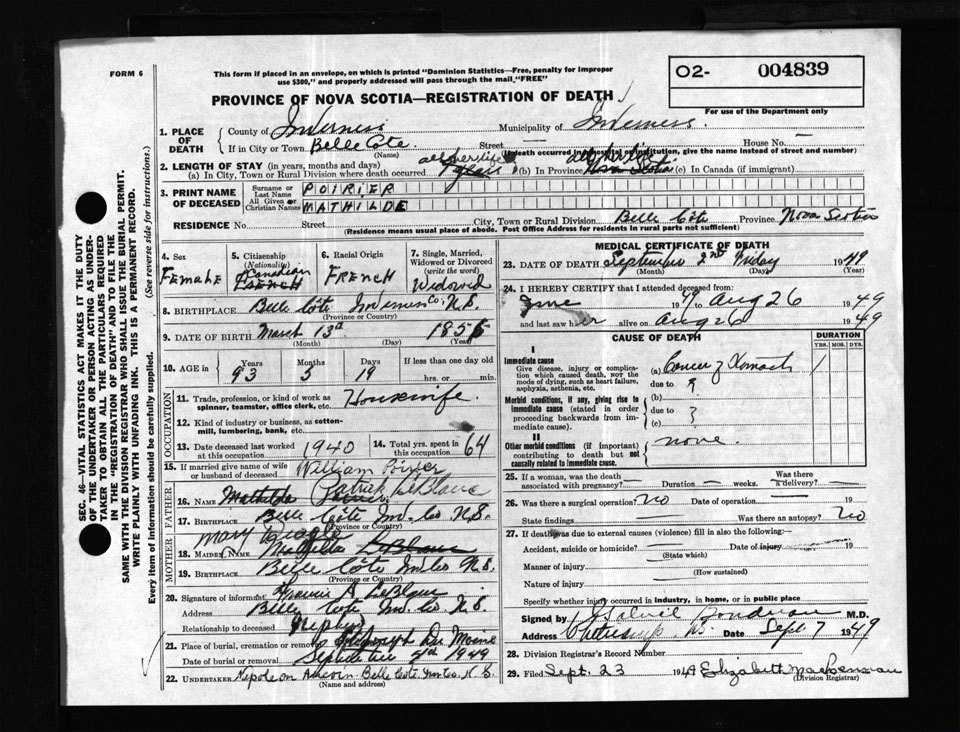 FORM 6
This form if placed in an envelope, on which is printed "Dominion Statistics—Free, penalty for improper
use $300," and properly addressed will pass through the mail, "FREE"
O2- 004839
For use of the Department only
PROVINCE OF NOVA SCOTIA—REGISTRATION OF DEATH
1. PLACE OF DEATH County of Inverness Municipality of Inverness.
If in City or Town Belle Cote. Street House No. —
(Name) (If death occurred in a hospital or institution, give the name instead of street and number)
2. LENGTH OF STAY (in years, months and days)
(a) In City, Town or Rural Division where death occurred all her life (b) In Province all her life Nova Scotia (c) In Canada (if immigrant)
3. PRINT NAME OF DECEASED Surname or Last Name POIRIER
All Given or Christian Names MATHILDE
RESIDENCE No. Street City, Town or Rural Division Belle Côte Province Nova Scotia
(Residence means usual place of abode. Post Office Address for residents in rural parts not sufficient)
4. Sex Female
5. Citizenship (Nationality) Canadian FRENCH
6. Racial Origin FRENCH
7. Single, Married, Widowed or Divorced (write the word) Widowed
8. BIRTHPLACE Belle Côte Inverness Co. N.S.
(Province or Country)
9. DATE OF BIRTH March 13th 1856
(Month) (Day) (Year)
10. AGE in Years 93 Months 5 Days 19 If less than one day old hrs. or min.
OCCUPATION
11. Trade, profession, or kind of work as spinner, teamster, office clerk, etc. Housewife.
12. Kind of industry or business, as cotton-mill, lumbering, bank, etc.
13. Date deceased last worked at this occupation 1940
14. Total yrs. spent in this occupation 64
15. If married give name of wife or husband of deceased William Poirier
FATHER
16. NAME Mathilde Patrick LeBlanc
17. BIRTHPLACE Belle Côte In. Co N.S.
(Province or Country)
MOTHER
18. MAIDEN NAME Mary Mathilda LeBlanc
19. BIRTHPLACE Belle Côte In Co N.S.
(Province or Country)
20. Signature of informant A. LeBlanc
Address Belle Côte In. Co N.S.
Relationship to deceased Nephew
21. Place of burial, cremation or removal St Joseph Du Moine
Date of burial or removal September 1949
22. UNDERTAKER Napoleon Belle Côte Inv. Co. N.S.
(Name and address)
MEDICAL CERTIFICATE OF DEATH
23. DATE OF DEATH September 2nd Friday 1949
(Month) (Day) (Year)
24. I HEREBY CERTIFY that I attended deceased from:
June 1949 to Aug 26 1949
and last saw her alive on Aug 26 1949
CAUSE OF DEATH
DURATION
YRS. MOS. DYS.
I
Immediate cause
Give disease, injury or complication which caused death, not the mode of dying, such as heart failure, asphyxia, asthenia, etc.
(a) Cancer of Stomach 1
due to ?
Morbid conditions, if any, giving rise to immediate cause (stated in order proceeding backwards from immediate cause).
(b)
due to ?
(c)
II
Other morbid conditions (if important) contributing to death but not causally related to immediate cause.
none.
25. If a woman, was the death associated with pregnancy? — Duration — weeks. Was there a delivery? —
26. Was there a surgical operation? no Date of operation — 19
State findings Was there an autopsy? no
27. If death was due to external causes (violence) fill in also the following:
Accident, suicide or homicide? Date of injury 19
(State which)
Manner of injury
(How sustained)
Nature of injury
Specify whether injury occurred in industry, in home, or in public place
Signed by M.D.
Address Cheticamp, NS Date Sept 7 1949
28. Division Registrar's Record Number
29. Filed Sept. 23 1949 Elizabeth
(Division Registrar)
SEC. 46—VITAL STATISTICS ACT MAKES IT THE DUTY
OF THE UNDERTAKER OR PERSON ACTING AS UNDER-
TAKER TO OBTAIN ALL THE PARTICULARS REQUIRED
IN THE "REGISTRATION OF DEATH" AND TO FILE THE
SAME WITH THE DIVISION REGISTRAR WHO SHALL ISSUE THE BURIAL PERMIT.
WRITE PLAINLY WITH UNFADING INK. THIS IS A PERMANENT RECORD.
Every item of information should be carefully supplied. (See reverse side for instructions.)